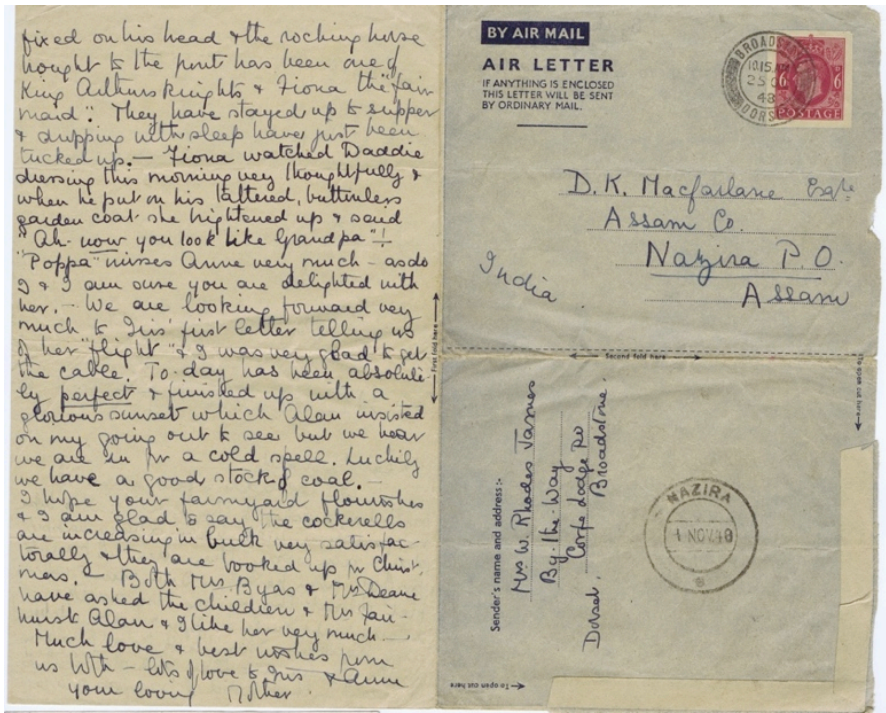 fixed on his head & the rocking horse
bought to the front has been one of
King Arthurs Knights & Fiona the "fair
maid". They have stayed up to supper
& dropping with sleep have just been
tucked up. — Fiona watched Daddie
dressing this morning very thoughtfully &
when he put on his tattered, buttonless
garden coat she brightened up & said
"Ah now you look like Grandpa"!
"Poppa" misses Anne very much – as do
I & I am sure you are delighted with
her. – We are looking forward very
much to Iris' first letter telling us
of her "flight" & I was very glad to get
the cable. To-day has been absolute-
ly perfect & finished up with a
glorious sunset which Alan insisted
on my going out to see but we hear
we are in for a cold spell. Luckily
we have a good stock of coal. –
I hope your farmyard flourishes
& I am glad to say the cockerells
are increasing in bulk very satisfac-
torally & they are booked up for Christ-
mas. – Both Mrs Byas & Mrs Deane
have asked the children & Mrs Fair-
hurst Alan & I like her very much —
Much love & best wishes from
us both – lots of love to Iris & Anne
your loving Mother.
First fold here
BY AIR MAIL
AIR LETTER
IF ANYTHING IS ENCLOSED
THIS LETTER WILL BE SENT
BY ORDINARY MAIL.
BROADSTONE
10.15 AM
25 OC
48
DORSET
6 6
POSTAGE
D. K. Macfarlane Esqre
Assam Co.
Nazira P.O.
Assam
India
Second fold here
To open cut here
Sender's name and address:-
Mrs W. Rhodes James
By-the-Way
Corfe Lodge Rd
Broadstone.
Dorset.
NAZIRA
1 NOV.
To open cut here